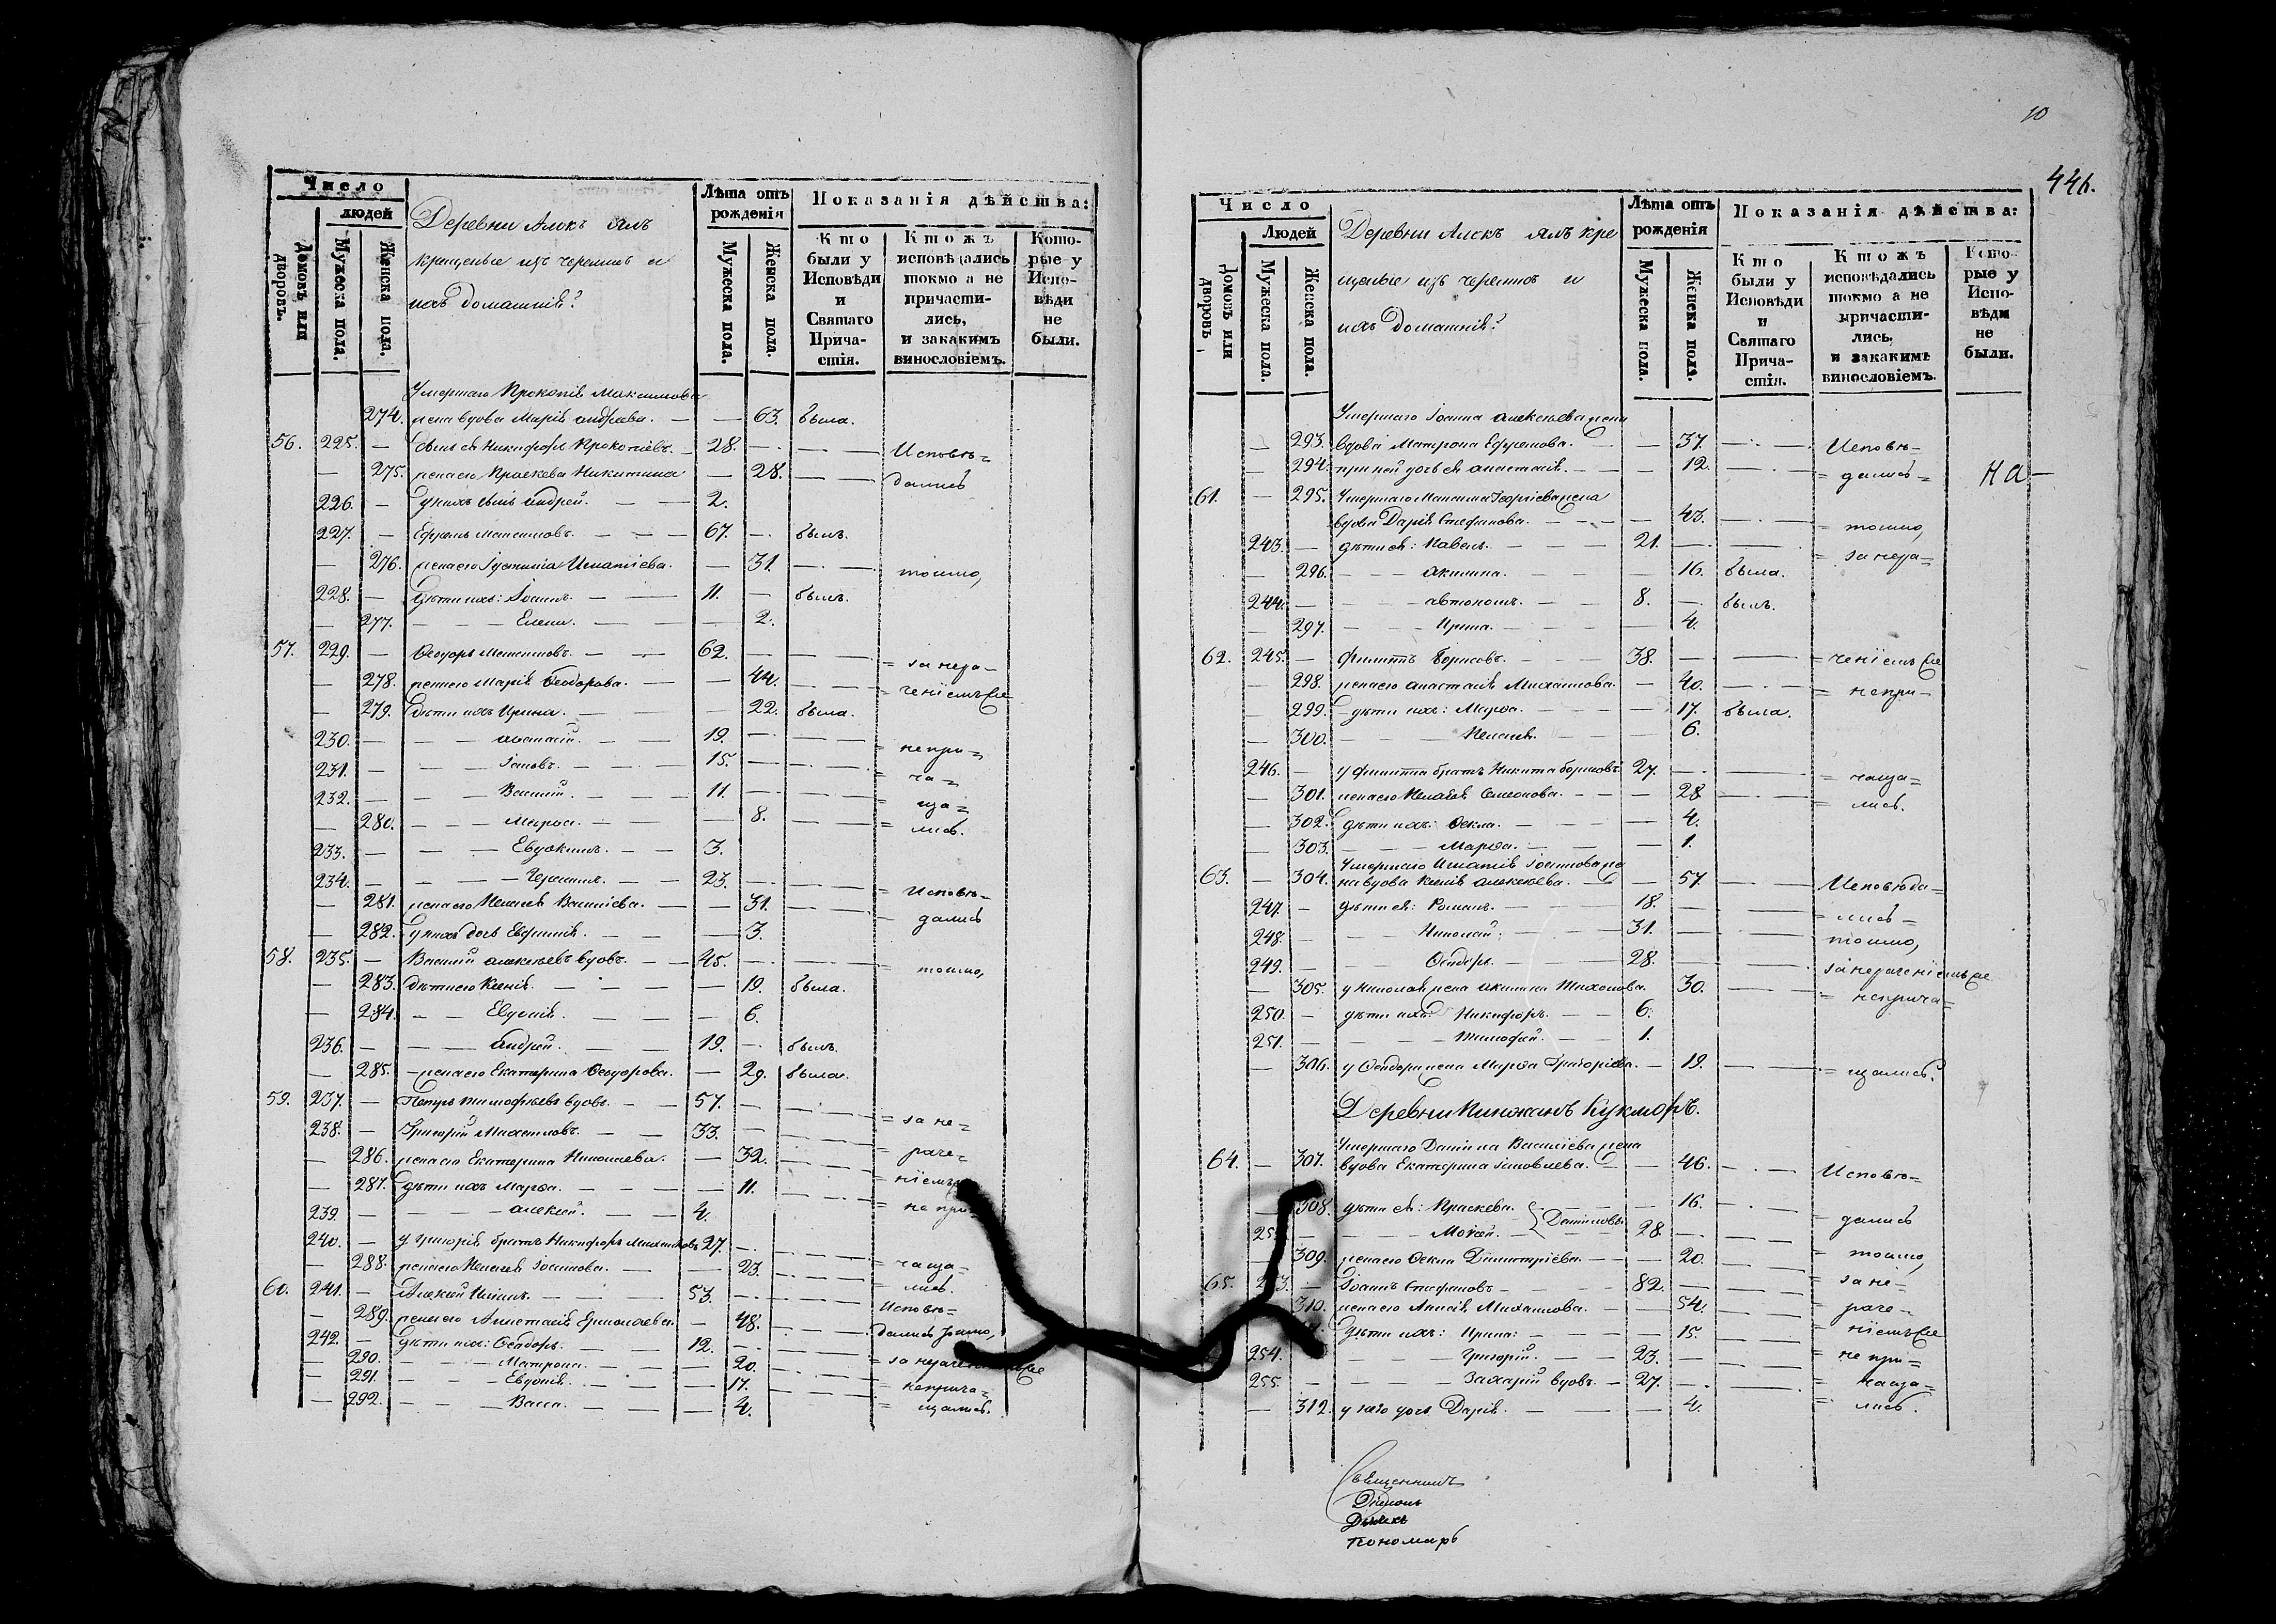 Число
людей
Домовъ или дворовъ.
Мужеска пола.
Женска пола.
Деревни Алекъ ялъ
крещеные изъ черемисъ и
ихъ домашнія:
Лѣта отъ рожденія
Мужеска пола.
Женска пола.
Показанія дѣйства:
Кто были у Исповѣди и Святаго Прича- стія.
Ктожъ исповѣдались токмо а не причасти- лись, и закакимъ винословіемъ.
Кото- рые у Испо- вѣди не были.
Умершаго Прокопія Максимова
274. жена вдова Марія Андреева. — — 63. была.
56. 225. — Сынъ ея Никифоръ Прокопіевъ. — 28. — Исповѣ=
— 275. жена его Праскева Никитина — 28. — дались
226. — у нихъ сынъ Андрей. — 2.
227. — Ефремъ Максимовъ. — 67. — былъ.
— 276. жена его Іустинія Игнатіева. — 31. — токмо,
228. — дѣти ихъ: Іоаннъ. — 11. — былъ.
— 277. — Елена. — 2.
57. 229. — Ѳеодоръ Максимовъ. — 62. — = за нера=
— 278. жена его Марія Ѳеодорова. — 44. — = ченіемъ не
— 279. дѣти ихъ Ирина. — 22. была.
230. — Аѳанасій. — 19. — = не при=
231. — Іаковъ. — 15. — = ча=
232. — Василій. — 11. — = ща=
— 280. — Марѳа. — 8. = лись.
233. — Евдокимъ. — 3.
234. — Герасимъ. — 23. — = Исповѣ=
— 281. жена его Пелагія Василіева. — 31. — = дались
— 282. у нихъ дочь Евфимія. — 3.
58. 235. — Василій Алексѣевъ вдовъ. — 45. — = токмо,
— 283. дѣти его Ксенія. — 19. была.
— 284. — Евдокія. — 6.
236. — Андрей. — 19. — былъ.
— 285. — жена его Екатерина Ѳеодорова. — 29. была.
59. 237. — Петръ Тимофѣевъ вдовъ. — 57. — = за не=
238. — Григорій Михаиловъ. — 33.
— 286. жена его Екатерина Николаева. — 32. = раче=
— 287. дѣти ихъ Марѳа. — 11. = ніемъ
239. — Алексій. — 4. = не при=
240. — у Григорія братъ Никифоръ Михаиловъ 27.
— 288. жена его Пелагія Іоаннова. — 23. = чаща=
60. 241. — Алексій Ильинъ. — 53. = лись.
— 289. жена его Анастасія Ермолаева. — 48. Исповѣ=
242. — дѣти ихъ: Ѳеодоръ. — 12. дались токмо,
— 290. — Матрона. — 20. = за нераченіемъ не
— 291. — Евдокія. — 17. = неприча=
— 292. — Васса. — 4. = щались.
10
446.
Число
Людей
Домовъ или дворовъ
Мужеска пола.
Женска пола.
Деревни Алекъ ялъ кре
щеные изъ черемисъ и
ихъ домашнія:
Лѣта отъ рожденія
Мужеска пола.
Женска пола.
Показанія дѣйства:
Кто были у Исповѣди и Святаго Прича- стія.
Ктожъ исповѣдались токмо а не причасти- лись, и закакимъ винословіемъ.
Кото- рые у Испо- вѣди не были.
Умершаго Іоанна Алексѣева жена
— 293. вдова Матрона Ефремова. — 37. — Исповѣ=
— 294. при ней дочь ея Анастасія. — 12. — = дались=
На—
61. — 295. Умершаго Максима Георгіева жена
вдова Дарія Стефанова. — 43. — = токмо,
243. — дѣти ея: Павелъ. — 21. — = за нера=
— 296. — Акилина. — 16. была.
244. — Автономъ. — 8. — былъ.
— 297. — Ирина. — 4.
62. 245. — Филиппъ Борисовъ. — 38. — = ченіемъ не
— 298. жена его Анастасія Михаилова. — 40. — = непри=
— 299. дѣти ихъ: Марѳа. — 17. была.
— 300. — Пелагія. — 6.
246. — у Филиппа братъ Никита Борисовъ 27. — = чаща=
— 301. жена его Пелагія Симеонова. — 28 — = лись.
— 302. дѣти ихъ: Ѳекла. — 4.
— 303. — Марѳа. — 1.
Умершаго Игнатія Іоаннова же
63. — 304. на вдова Ксенія Алексѣева. — 57. — Исповѣда=
247. — дѣти ея: Романъ. — 18. — = лись=
248. — Николай. — 31. — токмо,
249. — Ѳеодоръ. — 28. — за нераченіемъ не
— 305. у Николая жена Акилина Тихонова. 30. — = неприча=
250. — дѣти ихъ: Никифоръ. — 6.
251. — Тимофей. — 1.
— 306. у Ѳеодора жена Марѳа Григоріева. — 19. — = щались.
Деревни Кинжанъ Кукморъ.
Умершаго Даніила Василіева жена
64. — 307. вдова Екатерина Іаковлева. — 46. — Исповѣ=
308. дѣти ея: Праскева. — 16. = дались
— Мокей. } Даниловъ 28.
309. жена его Ѳекла Димитріева. — 20. = токмо,
65. — Іоаннъ Стефановъ — 82. — = за не=
310. жена его Анисія Михаилова. — 54. = раче=
дѣти ихъ: Ирина: — 15. = ніемъ не
254. — Григорій. — 23. — = не при=
255. — Захарій вдовъ. — 27. — = чаща=
— 312. у него дочь Дарія. — 4. = лись.
Священникъ
Діаконъ
Дьячекъ
Пономарь